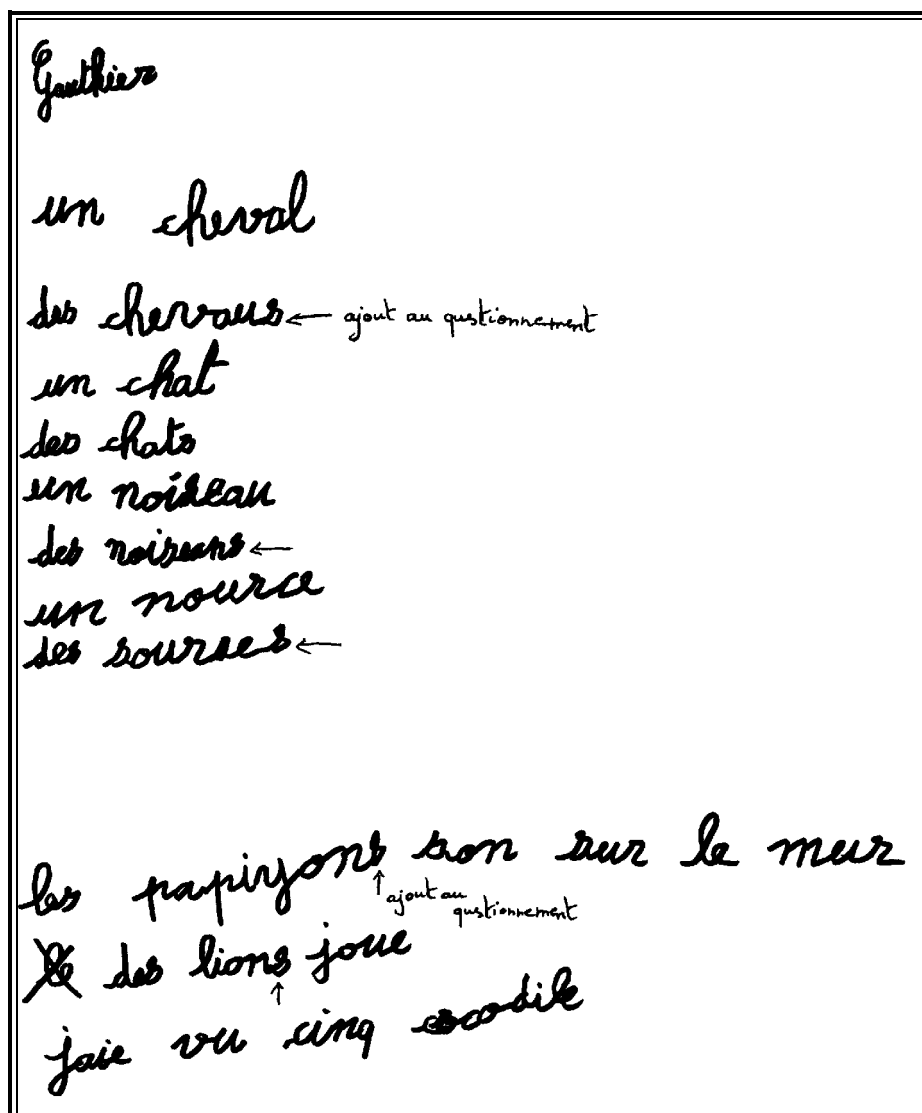 Gauthier
un cheval
des chevaus ← ajout au qustionnement
un chat
des chats
un noiseau
des noiseaus ←
un nource
des sourses ←
les papiyons son sur le mur
↑ ajout au
qustionnement
le des lions joue
↑
jaie vu cinq